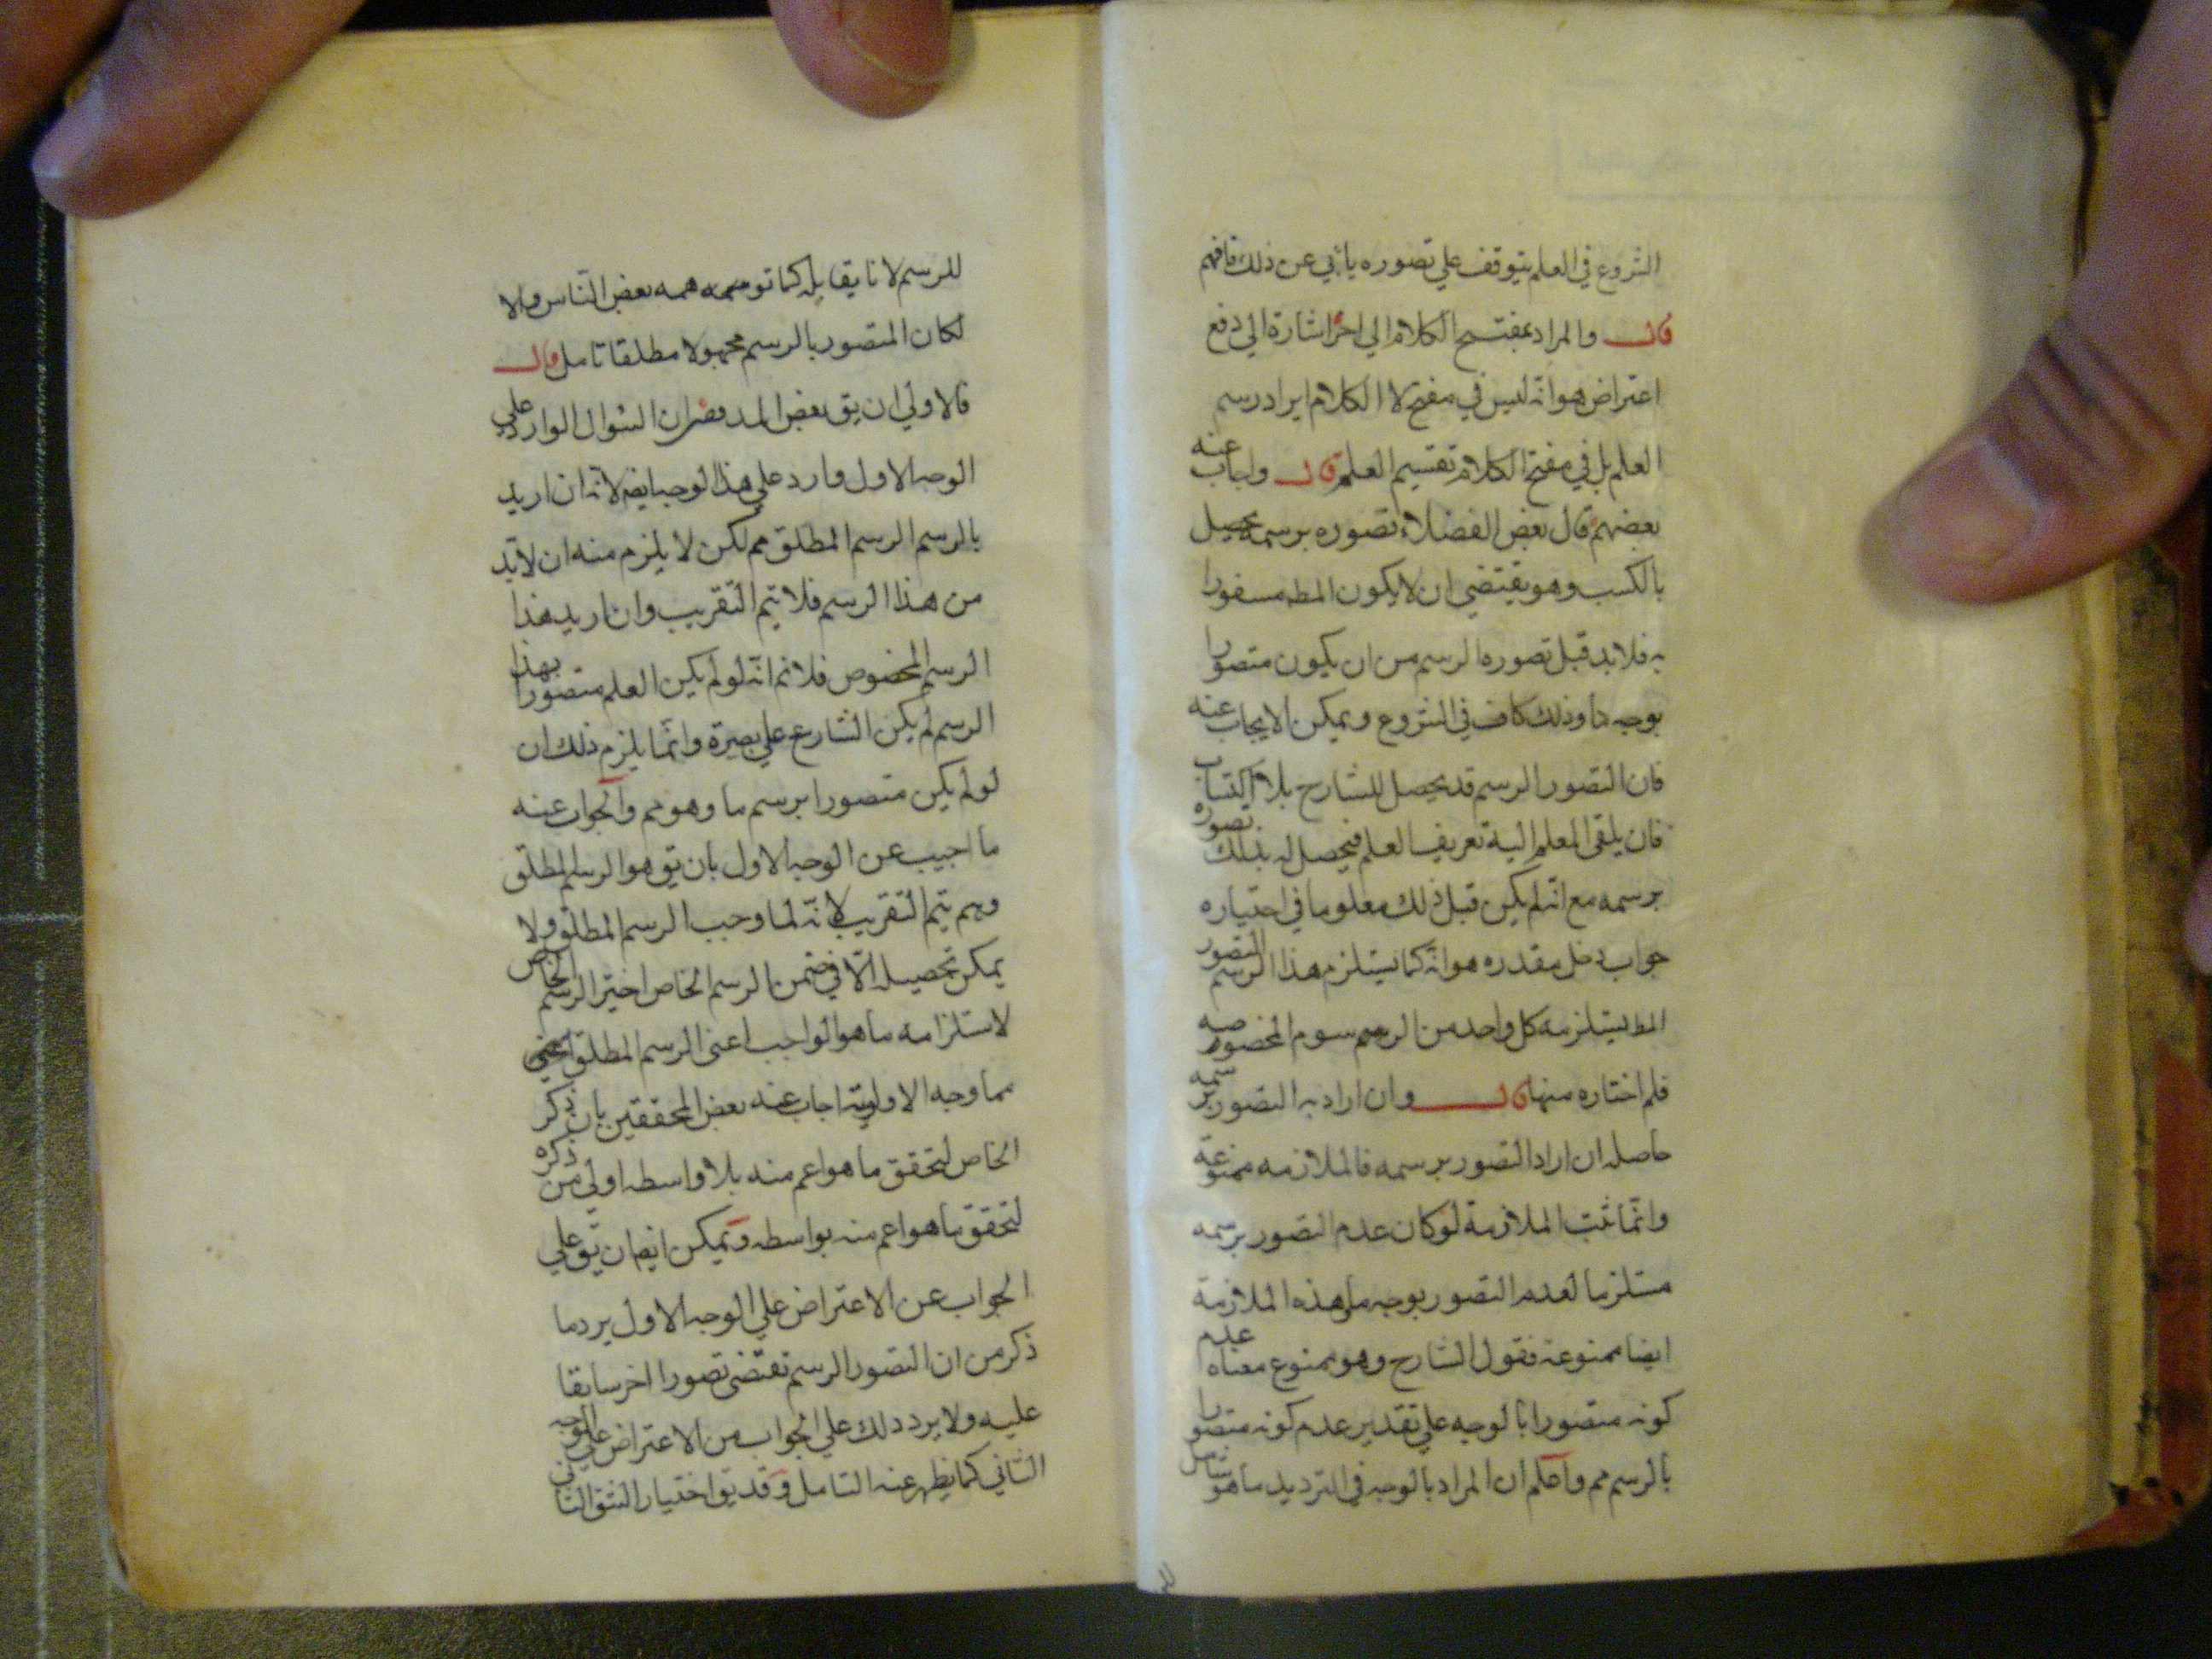 الشروع في العلم يتوقف علي تصوره يأبي عن ذلك فافهم
قال والمراد بمفتتح الكلام الي اخره اشارة الي دفع
اعتراض هو انه ليس في مفتح الكلام ايراد رسم
العلم بل في مفتح الكلام تقسيم العلم قال واجاب عنه
بعضهم قال بعض الفضلاء تصوره برسمه يحصل
بالكسب وهو يقتضي ان لا يكون المط
به فلا بد قبل تصوره الرسم من ان يكون متصورا
بوجه ما وذلك كاف في الشروع ويمكن الايجاب عنه
فان التصور الرسم قد يحصل للشارح بلا اكتساب
فان يلقي المعلم اليه تعريف العلم فيحصل له بذلك تصوره
برسمه مع انه لم يكن قبل ذلك معلوما في اختياره
جواب دخل مقدره هو انه كما يستلزم هذا الرسم التصور
المط يستلزمه كل واحد من الرسوم المخصوصه
فلم اختاره منها قال وان اراد به التصور برسمه
حاصله ان اراد التصور برسمه فالملازمه ممنوعة
وانما تثبت الملازمة لو كان عدم التصور برسمه
مستلزما لعدم التصور بوجه ما وهذه الملازمة
ايضا ممنوعة فقول الشارح وهو ممنوع معناه عدم
كونه متصورا بالوجه علي تقدير عدم كونه متصورا
بالرسم مم واعلم ان المراد بالوجه في الترديد ما هو شامل
للرسم لا ما يقابله كما توهمه بعض الناس والا
لكان المتصور بالرسم مجهولا مطلقا تامل قال
فالاولي ان يق بعض المدققين ان السوال الوارد علي
الوجه الاول وارد علي هذا الوجه ايض لانه ان اريد
بالرسم الرسم المطلق مم لكن لا يلزم منه ان لا بد
من هذا الرسم فلا يتم التقريب وان اريد هذا
الرسم المخصوص فلانم انه لو لم يكن العلم متصورا بهذا
الرسم لم يكن الشارع علي بصيرة وانما يلزم ذلك ان
لو لم يكن متصورا برسم ما وهو مم والجواب عنه
ما اجيب عن الوجه الاول بان يق هو الرسم المطلق
ويتم التقريب لانه لما وجب الرسم المطلق ولا
يمكن تحصيله الا في ضمن الرسم الخاص اختير الرسم الخاص
لاستلزامه ما هو الواجب اعني الرسم المطلق
مما وجه الاولوية اجاب عنه بعض المحققين بان ذكر
الخاص لتحقق ما هو اعم منه بلا واسطه اولي من ذكره
لتحقق ما هو اعم منه بواسطه ويمكن ايض ان يق علي
الجواب عن الاعتراض علي الوجه الاول يرد ما
ذكر من ان التصور الرسم تقتضي تصورا اخر سابقا
عليه ولا يرد ذلك علي الجواب من الاعتراض علي الوجه
الثاني كما يظهر عنه التامل وقد يق اختيار الشق الثاني